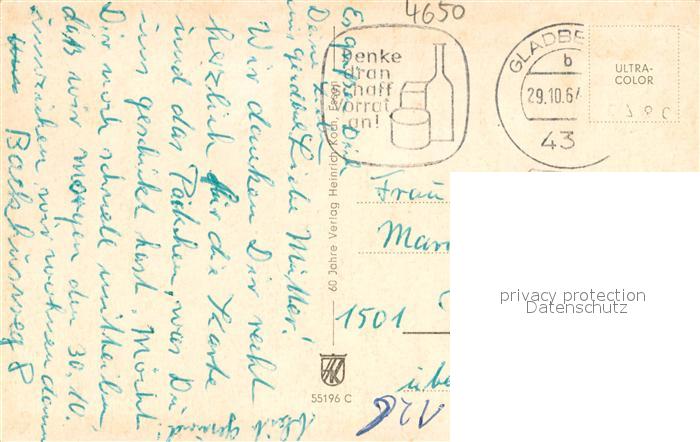 4650
Liebe Mutter!
Wir danken Dir recht
herzlich für die Karte
und das Päckchen, was Du
uns geschickt hast. Möcht
Dir noch schnell mitteilen,
daß wir morgen den 30.10.
umziehen, wir wohnen dann
Backhausweg 8
Bleib gesund!
Es grüßt Dich
Deine
Denke
dran
schaff
Vorrat
an!
GLADBE
b
29.10.64
43
ULTRA-
COLOR
60 Jahre Verlag Heinrich Koch, Essen
55196 C
Frau
1501
privacy protection
Datenschutz